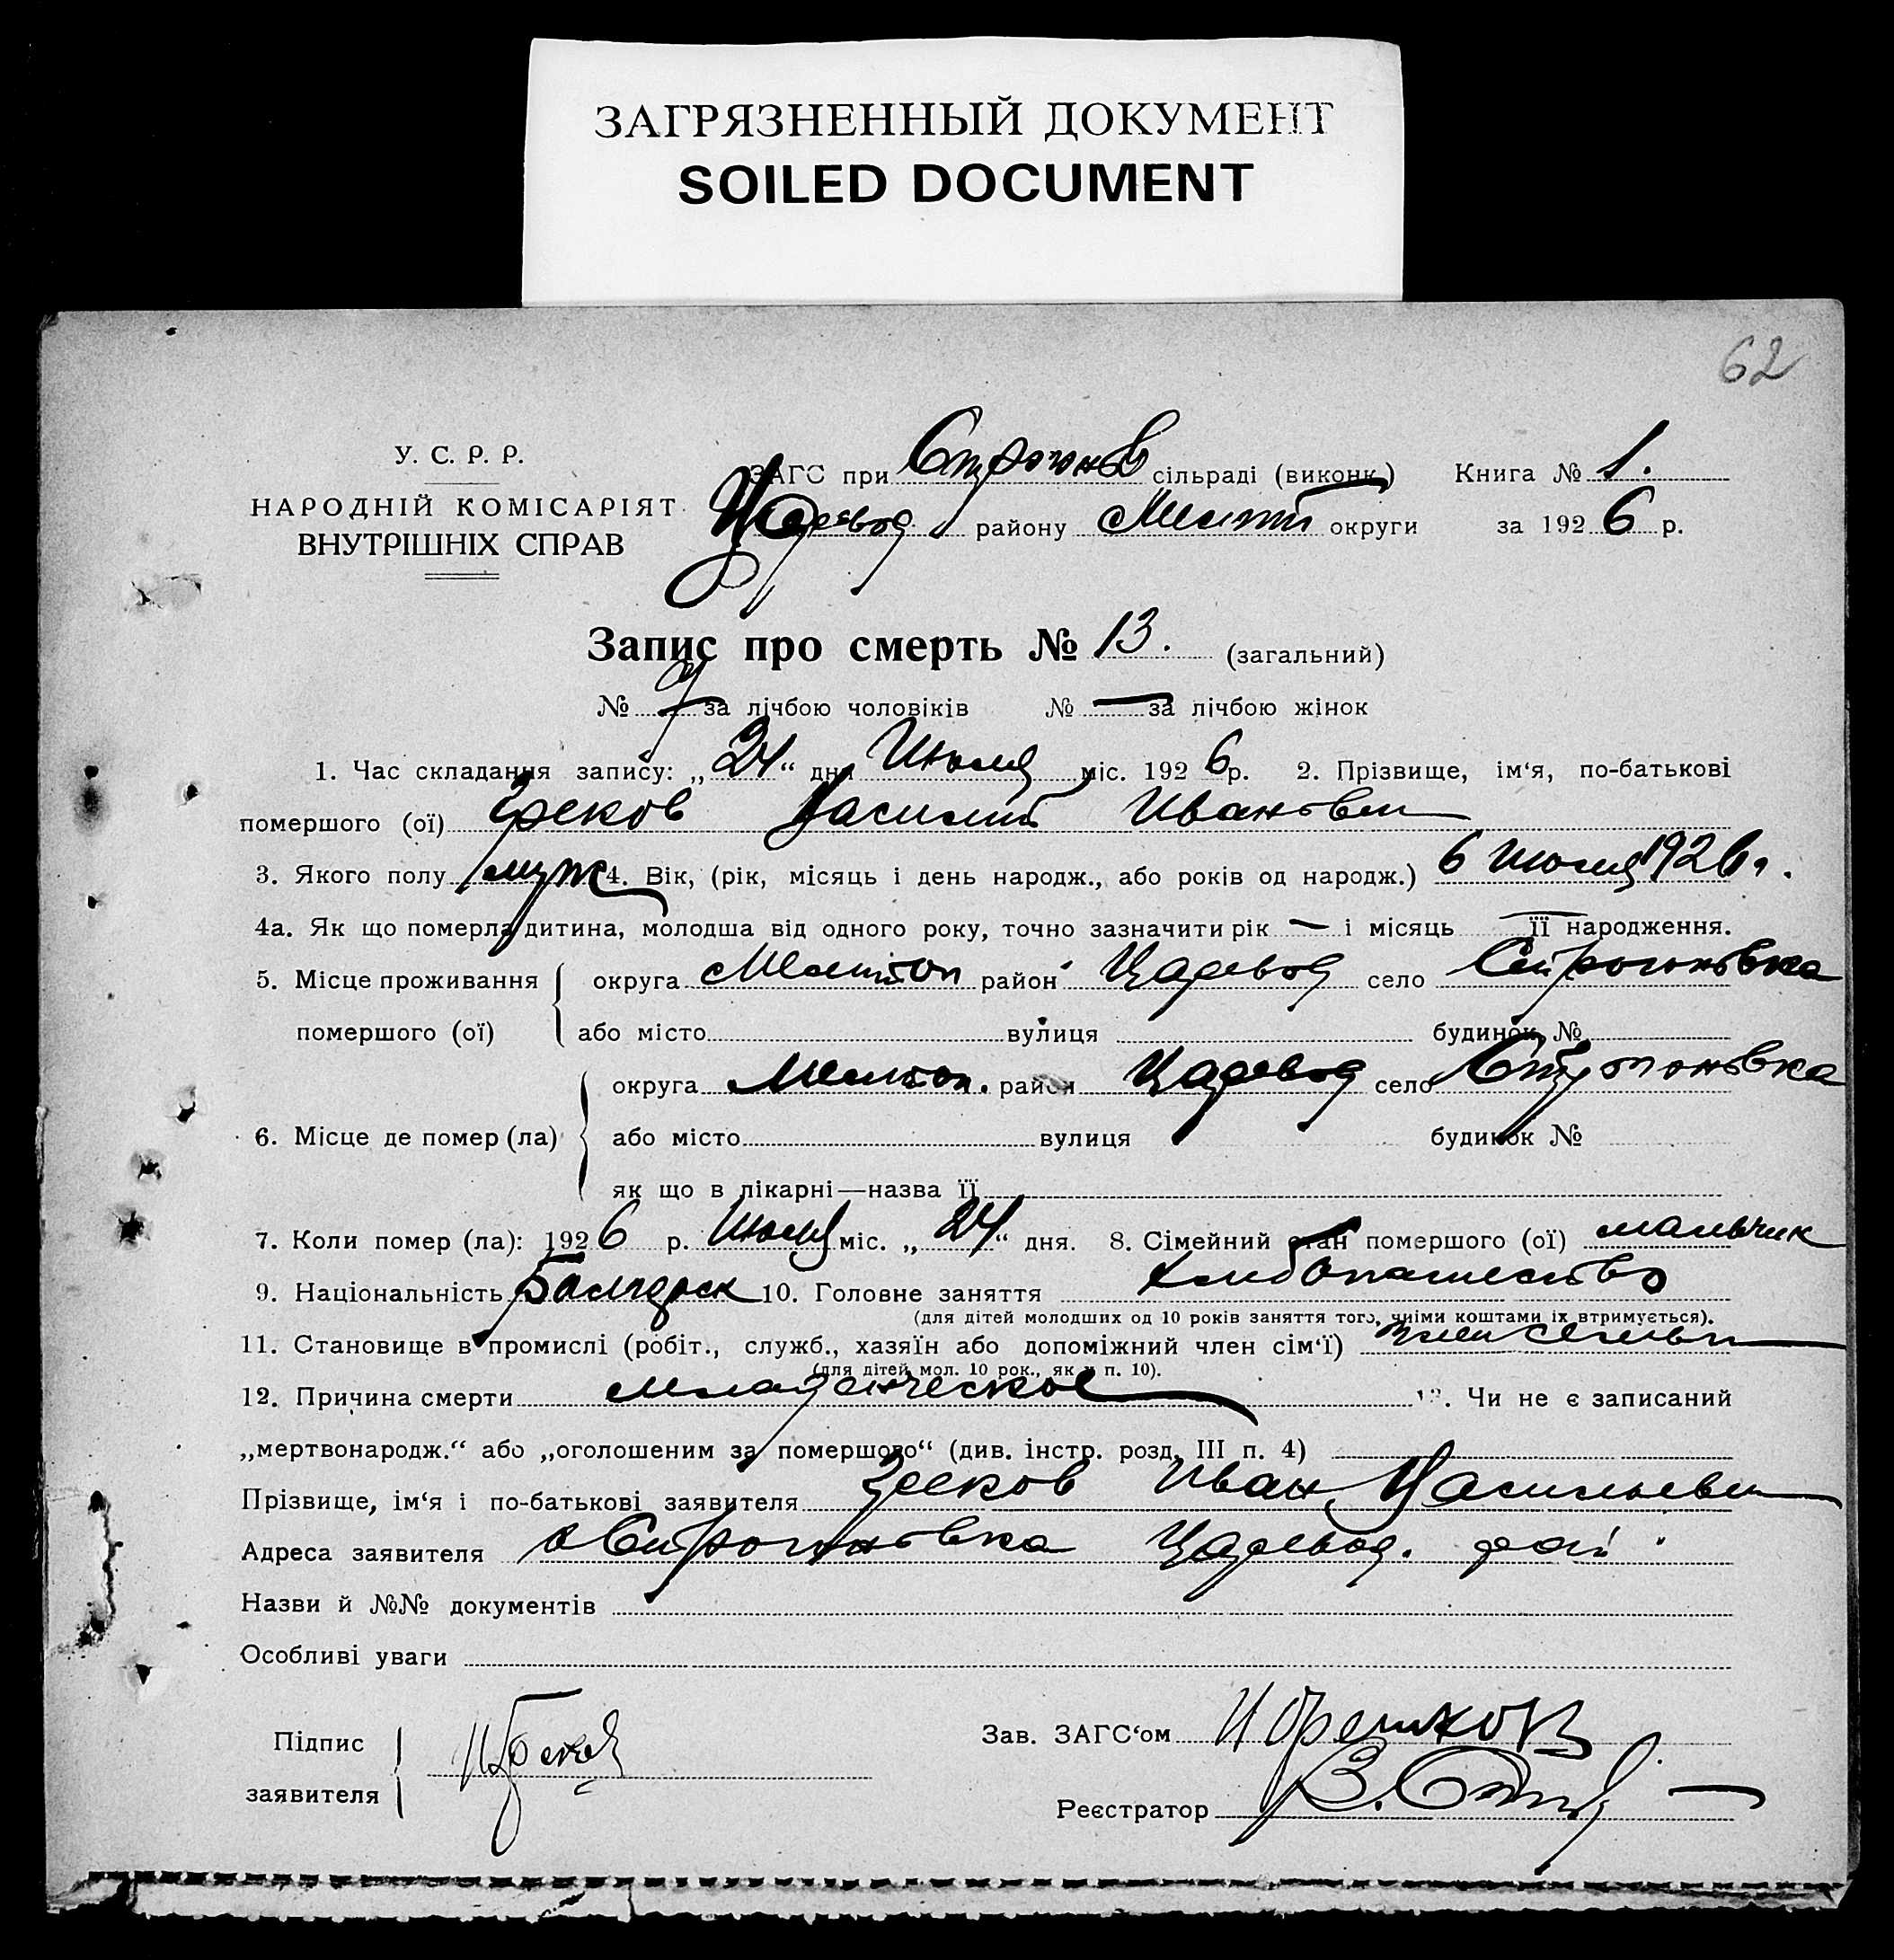 ЗАГРЯЗНЕННЫЙ ДОКУМЕНТ
SOILED DOCUMENT
62
У. С. Р. Р.
НАРОДНІЙ КОМІСАРІЯТ
ВНУТРІШНІХ СПРАВ
ЗАГС при Строгонов сільраді (виконк.) Книга № 1.
Царевод. району Мелит округи за 1926 р.
Запис про смерть № 13. (загальний)
№ за лічбою чоловіків № — за лічбою жінок
1. Час складання запису: „24“ дня Июля міс. 1926 р. 2. Прізвище, ім‘я, по-батькові
помершого (ої) Греков Василий Иванович
3. Якого полу муж 4. Вік, (рік, місяць і день народж., або років од народж.) 6 Июля 1926 г.
4а. Як що померла дитина, молодша від одного року, точно зазначити рік — і місяць — її народження.
5. Місце проживання округа Мелитоп район Царевод село Строгоновка
помершого (ої) або місто вулиця будинок №
округа Мелитоп. район Царевод село Строгоновка
6. Місце де помер (ла) або місто вулиця будинок №
як що в лікарні—назва її
7. Коли помер (ла): 1926 р. Июля міс. „24“ дня. 8. Сімейний стан помершого (ої) мальчик
9. Національність Болгарск 10. Головне заняття хлебопашество
(для дітей молодших од 10 років заняття того, чиїми коштами їх втримується).
11. Становище в промислі (робіт., служб., хазяїн або допоміжний член сім‘ї) член семьи
(для дітей мол. 10 рок., як у п. 10).
12. Причина смерти младенческое 13. Чи не є записаний
„мертвонародж.“ або „оголошеним за помершого“ (див. інстр. розд. III п. 4)
Прізвище, ім‘я і по-батькові заявителя Греков Иван Васильевич
Адреса заявителя с Строгоновка Царевод. рай
Назви й №№ документів
Особливі уваги
Підпис
заявителя
Зав. ЗАГС‘ом
Реєстратор